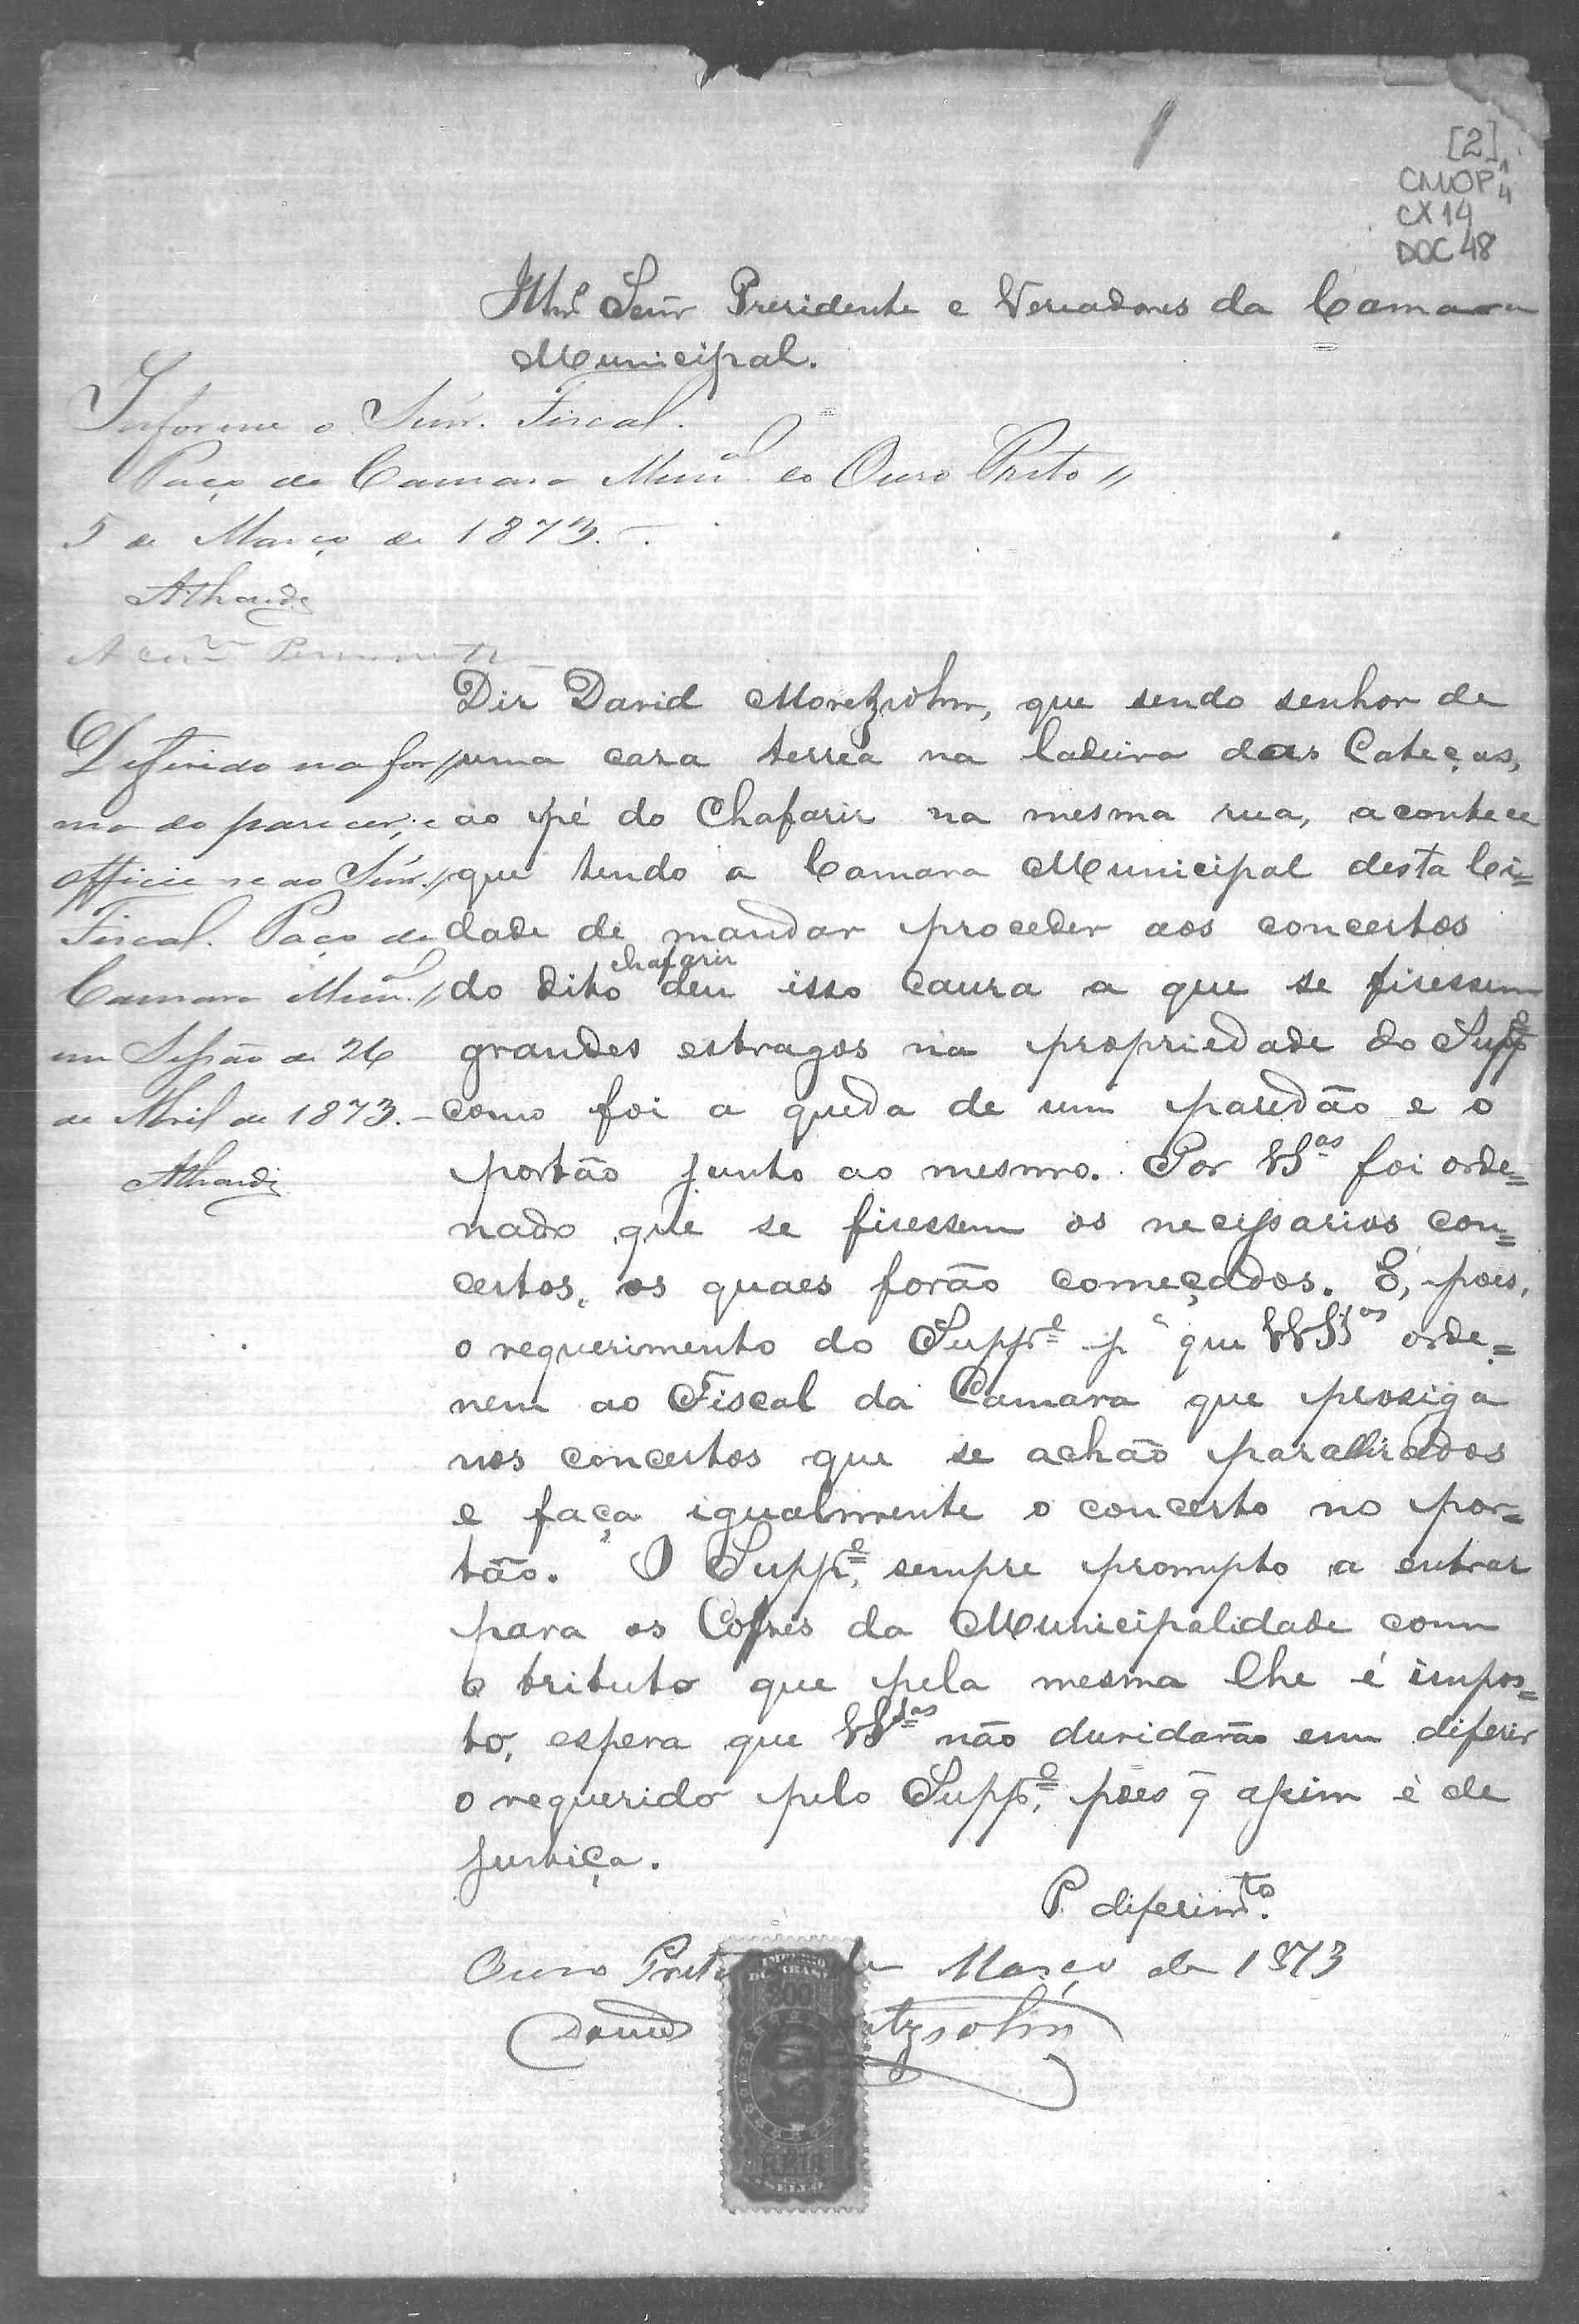 [2]
CMOP 1/4
CX14
DOC 48
Illmº Senr Presidente e Vereadores da Camara
Municipal.
Informe o Snr. Fiscal.
Paço da Camara Munal do Ouro Preto
5 de Março de 1873.
Athaide
A com
Deferido na for
ma do parecer, e
officie-se ao Snr.
Fiscal. Paço da
Camara Munal
em Sessão de 26
de Abril de 1873.
Athaide
Diz David Moretzsohn, que sendo senhor de
uma caza terrea na ladeira das Cabeças,
ao pé do Chafariz na mesma rua, acontece
que tendo a Camara Municipal desta Ci=
dade de mandar proceder aos concertos
do dito chafariz deu isso cauza a que se fizessem
grandes estragos na propriedade do Suppe
como foi a queda de um paredão e o
portão junto ao mesmo. Por VSas foi orde=
nado que se fizessem os necessarios con=
certos, os quaes forão começados. É, pois,
o requerimento do Suppe pª que VVSSas orde=
nem ao Fiscal da Camara que prosiga
nos concertos que se achão parallizados
e faça igualmente o concerto no por=
tão. O Suppe, sempre prompto a entrar
para os Cofres da Municipalidade com
o tributo que pela mesma lhe é impos=
to, espera que VSas não duvidarão em diferir
o requerido pelo Suppe, pois q̃ assim é de
justiça.
P. diferimto.
Ouro Preto de Março de 1873
David etzsohn
IMPERIO
DO BRASIL
200
SELLO